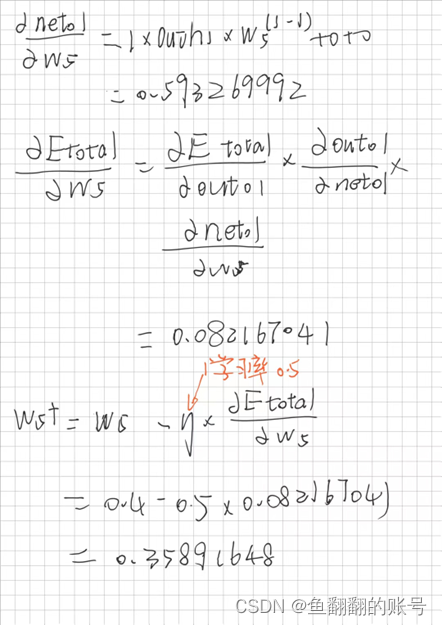 ∂neto1/∂w5 = 1 × outh1 × w5^(1-1) + 0 + 0
= 0.593269992
∂Etotal/∂w5 = ∂Etotal/∂outo1 × ∂outo1/∂neto1 ×
∂neto1/∂w5
= 0.082167041
学习率 0.5
w5+ = w5 - η × ∂Etotal/∂w5
= 0.4 - 0.5 × 0.082167041
= 0.35891648
CSDN @鱼翻翻的账号